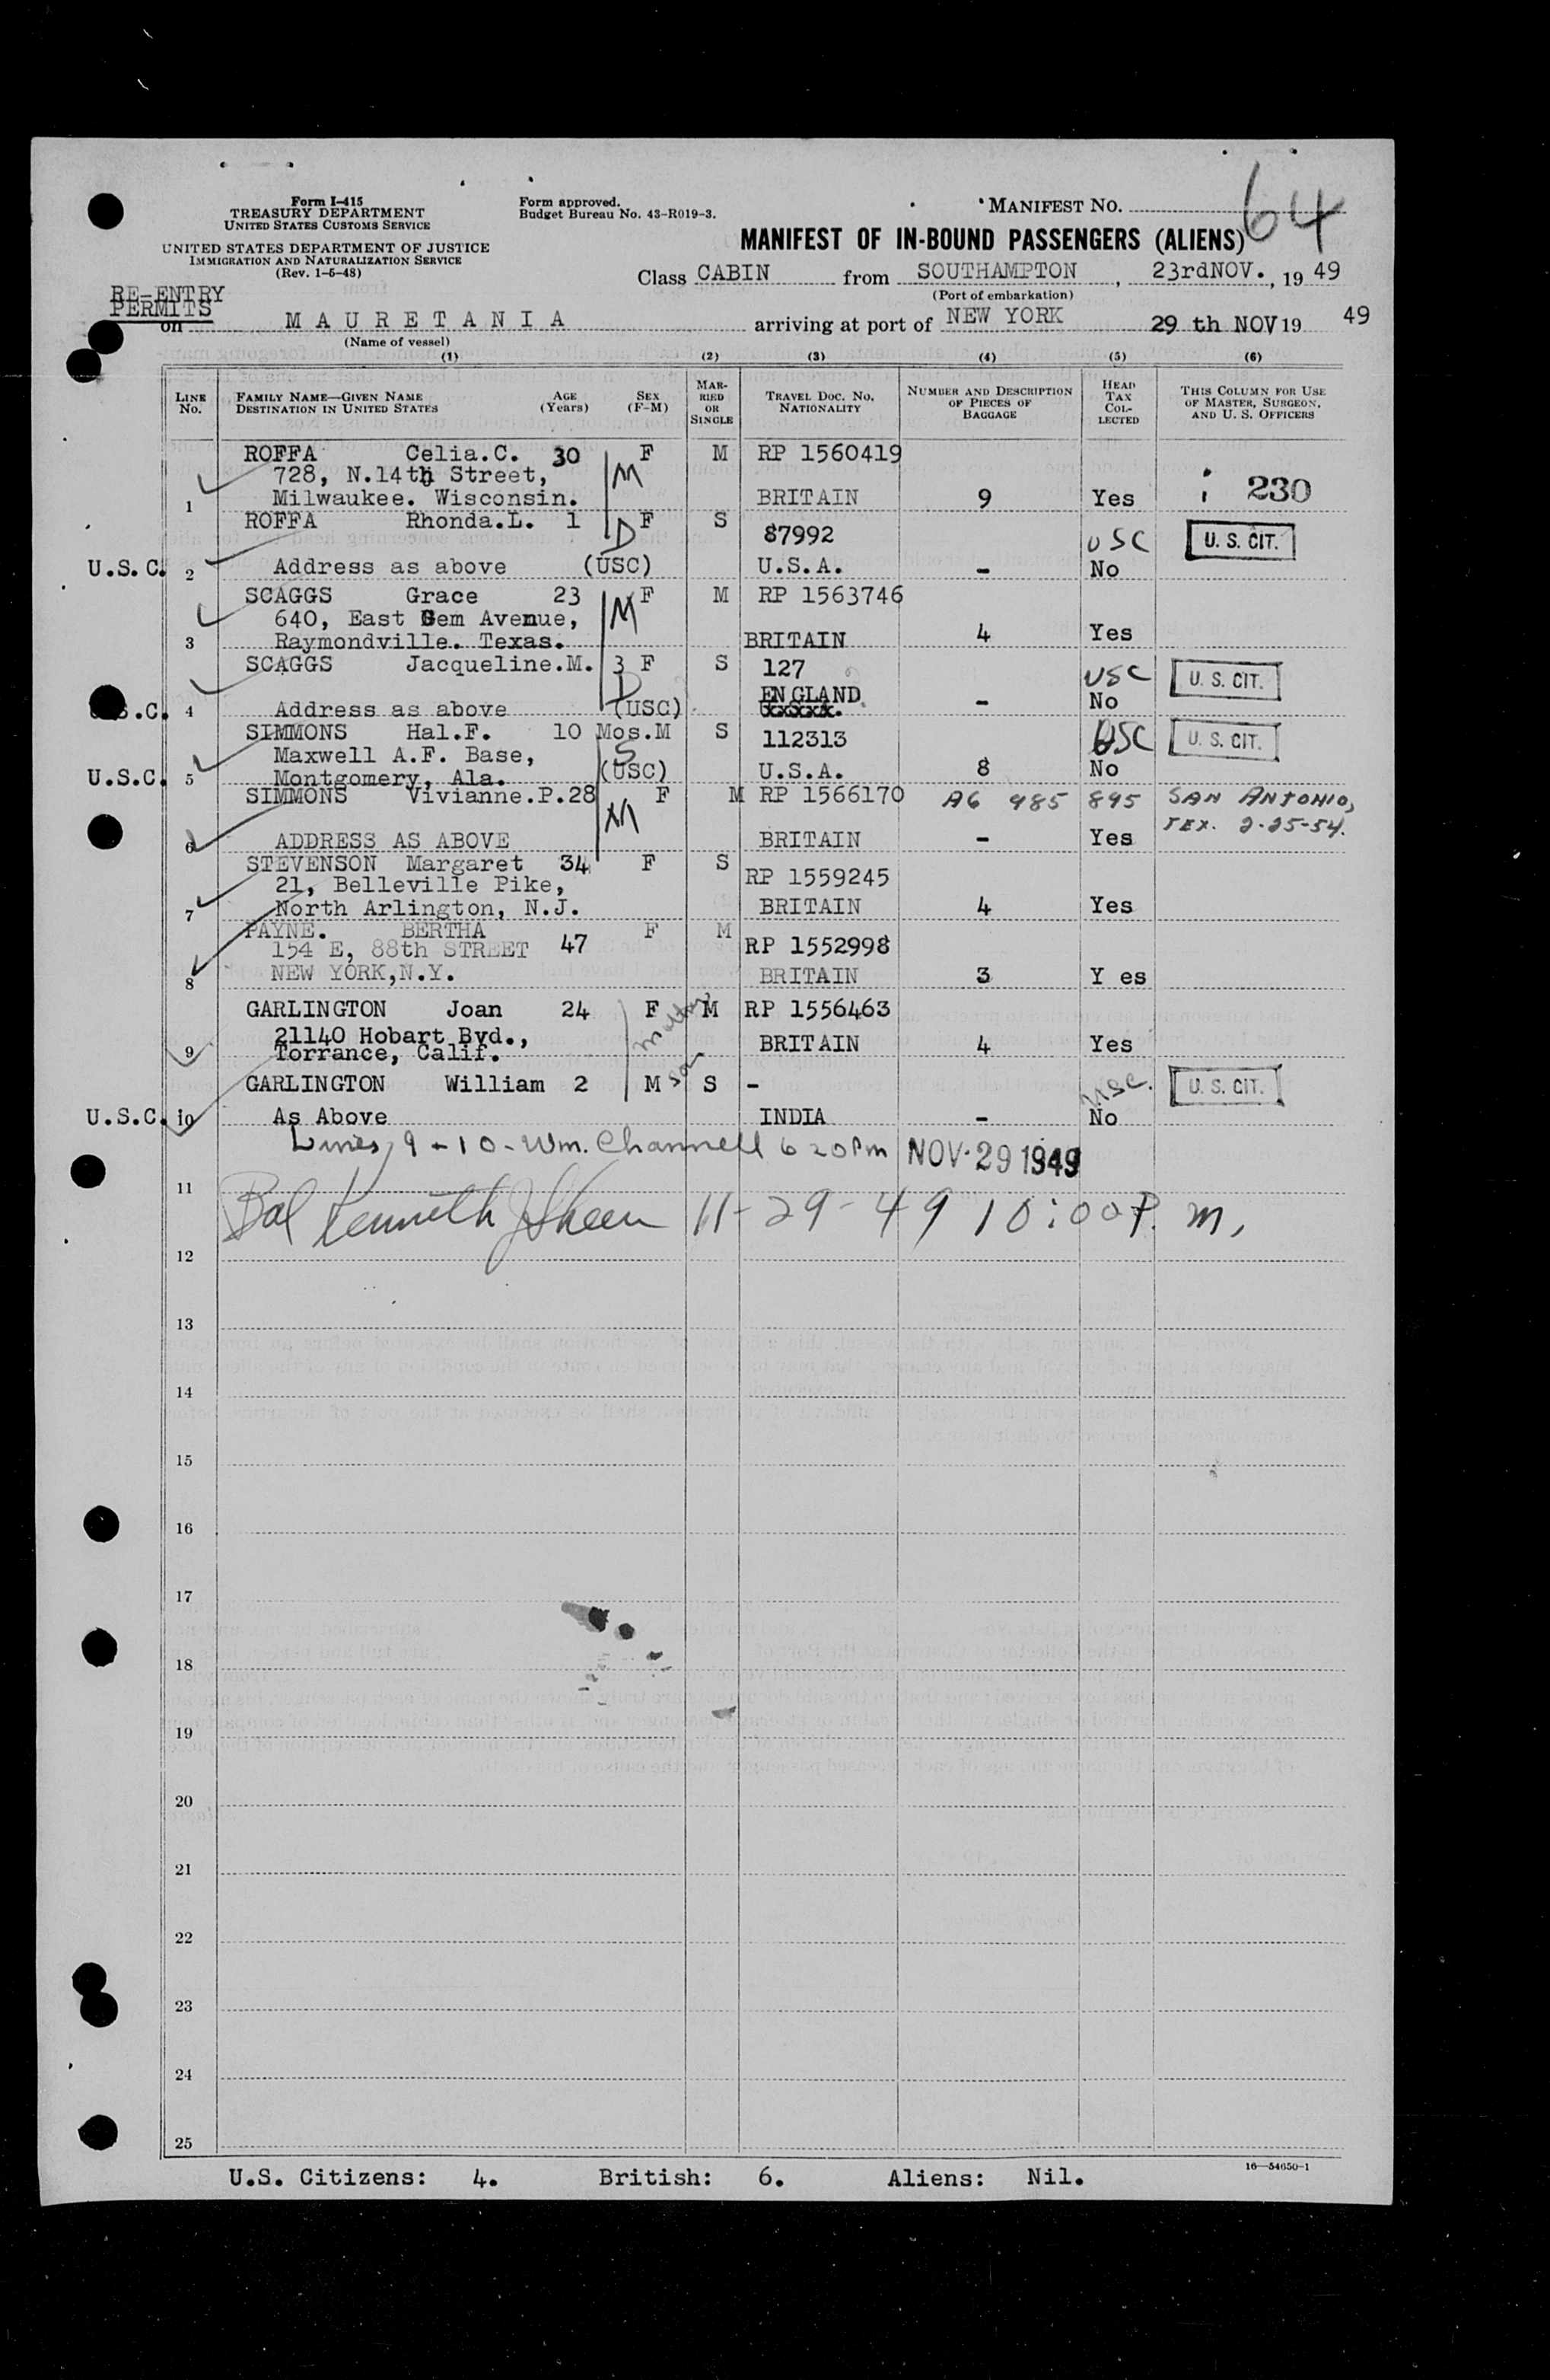 Form I-415
TREASURY DEPARTMENT
UNITED STATES CUSTOMS SERVICE
UNITED STATES DEPARTMENT OF JUSTICE
IMMIGRATION AND NATURALIZATION SERVICE
(Rev. 1-5-48)
Form approved.
Budget Bureau No. 43-R019-3.
MANIFEST NO. 64
MANIFEST OF IN-BOUND PASSENGERS (ALIENS)
Class CABIN from SOUTHAMPTON, 23rdNOV., 19 49
(Port of embarkation)
RE-ENTRY
PERMITS
on M A U R E T A N I A arriving at port of NEW YORK 29 th NOV 19 49
(Name of vessel)
(1) (2) (3) (4) (5) (6)
LINE No. FAMILY NAME—GIVEN NAME DESTINATION IN UNITED STATES AGE (Years) SEX (F-M) MARRIED OR SINGLE TRAVEL DOC. NO. NATIONALITY NUMBER AND DESCRIPTION OF PIECES OF BAGGAGE HEAD TAX COLLECTED THIS COLUMN FOR USE OF MASTER, SURGEON, AND U. S. OFFICERS
ROFFA Celia.C. 30 F M RP 1560419
728, N.14th Street, M
1 Milwaukee. Wisconsin. BRITAIN 9 Yes 230
ROFFA Rhonda.L. 1 F S
D 87992 USC U. S. CIT.
U.S.C. 2 Address as above (USC) U.S.A. - No
SCAGGS Grace 23 F M RP 1563746
640, East Gem Avenue, M
3 Raymondville. Texas. BRITAIN 4 Yes
SCAGGS Jacqueline.M. 3 F S 127
D USC U. S. CIT.
.C. 4 Address as above (USC) ENGLAND - No
SIMMONS Hal.F. 10 Mos.M S 112313 USC U. S. CIT.
Maxwell A.F. Base, S
U.S.C. 5 Montgomery, Ala. (USC) U.S.A. 8 No
SIMMONS Vivianne.P.28 F M RP 1566170 A6 985 895 SAN ANTONIO,
M TEX. 2-25-54.
6 ADDRESS AS ABOVE BRITAIN - Yes
STEVENSON Margaret 34 F S
21, Belleville Pike, RP 1559245
7 North Arlington, N.J. BRITAIN 4 Yes
PAYNE. BERTHA F M
154 E, 88th STREET 47 RP 1552998
8 NEW YORK,N.Y. BRITAIN 3 Y es
GARLINGTON Joan 24 F M RP 1556463
21140 Hobart Bvd., mother
9 Torrance, Calif. BRITAIN 4 Yes
GARLINGTON William 2 M son S - USC. U. S. CIT.
U.S.C. 10 As Above INDIA - No
Lines 9 - 10 - Wm. Channell 6 20 Pm NOV 29 1949
11
Bal Kenneth J Skeen 11-29-49 10:00 P. m.
12
13
14
15
16
17
18
19
20
21
22
23
24
25
16—54650-1
U.S. Citizens: 4. British: 6. Aliens: Nil.